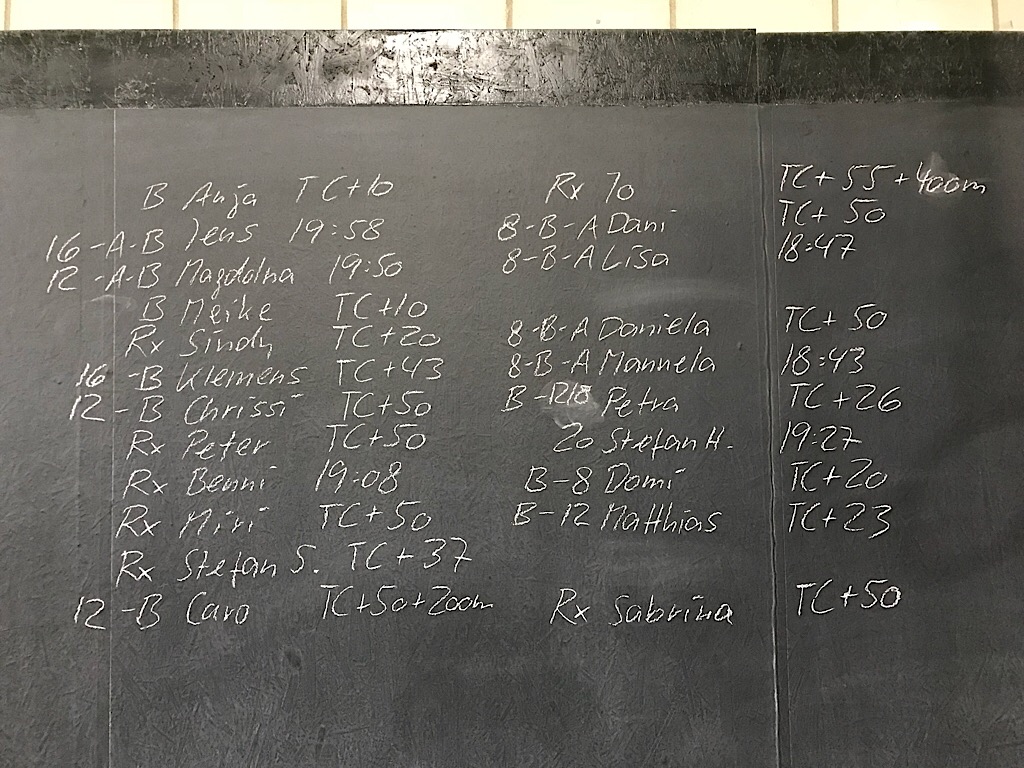 B Anja TC+10
16-A-B Jens 19:58
12-A-B Magdalna 19:50
B Meike TC+10
Rx Sindy TC+20
16-B Klemens TC+43
12-B Chrissi TC+50
Rx Peter TC+50
Rx Benni 19:08
Rx Miri TC+50
Rx Stefan S. TC+37
12-B Caro TC+50+200m
Rx Jo TC+55+400m
8-B-A Dani TC+50
8-B-A Lisa 18:47
8-B-A Daniela TC+50
8-B-A Manuela 18:43
B- Petra TC+26
20 Stefan H. 19:27
B-8 Domi TC+20
B-12 Matthias TC+23
Rx Sabrina TC+50